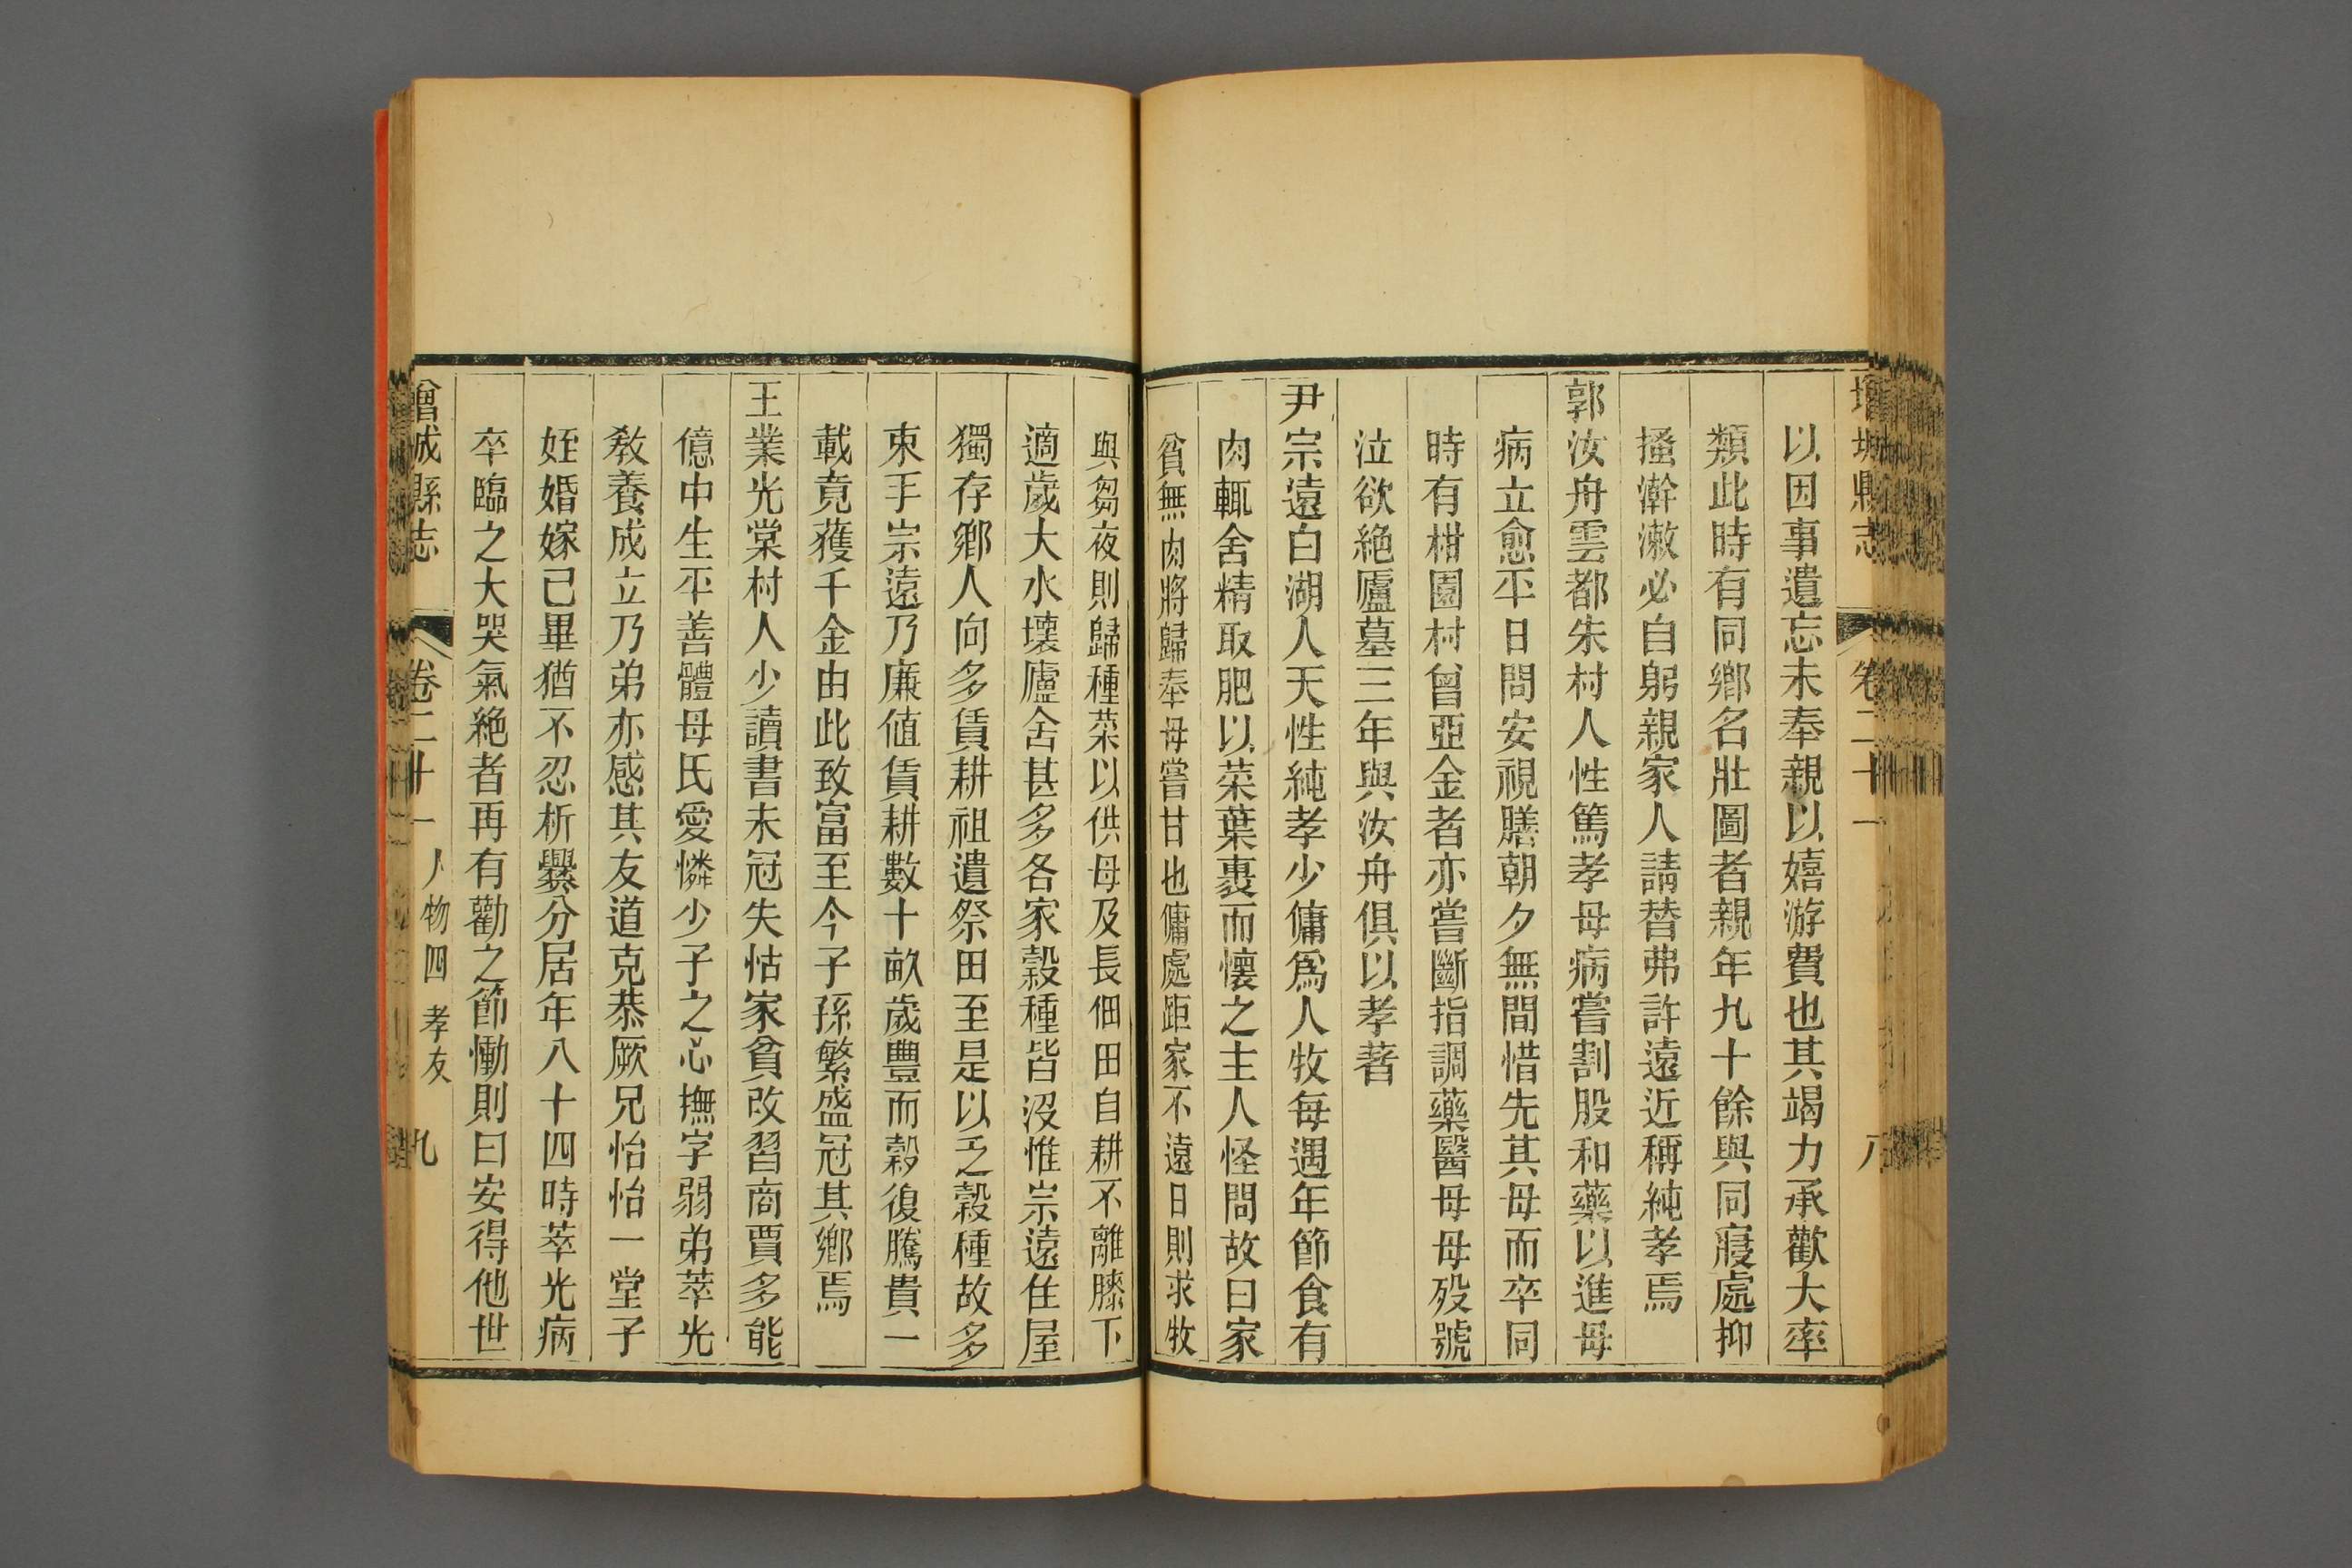 增城縣志 卷二十一 八
以因事遺忘未奉親以嬉游費也其竭力承歡大率
類此時有同鄉名壯圖者親年九十餘與同寢處抑
搔澣漱必自躬親家人請替弗許遠近稱純孝焉
郭汝舟雲都朱村人性篤孝母病嘗割股和藥以進母
病立愈平日問安視膳朝夕無間惜先其母而卒同
時有柑園村曾亞金者亦嘗斷指調藥醫母母歿號
泣欲絶廬墓三年與汝舟俱以孝著
尹宗遠白湖人天性純孝少傭爲人牧每遇年節食有
肉輒舍精取肥以菜葉裹而懷之主人怪問故曰家
貧無肉將歸奉母嘗甘也傭處距家不遠日則求牧
與芻夜則歸種菜以供母及長佃田自耕不離膝下
適歲大水壞廬舍甚多各家穀種皆沒惟宗遠住屋
獨存鄉人向多賃耕祖遺祭田至是以乏穀種故多
束手宗遠乃廉値賃耕數十畝歲豐而穀復騰貴一
載竟獲千金由此致富至今子孫繁盛冠其鄉焉
王業光棠村人少讀書未冠失怙家貧改習商賈多能
億中生平善體母氏愛憐少子之心撫字弱弟萃光
教養成立乃弟亦感其友道克恭厥兄怡怡一堂子
姪婚嫁已畢猶不忍析爨分居年八十四時萃光病
卒臨之大哭氣絶者再有勸之節慟則曰安得他世
曾城縣志 卷二十一 人物四 孝友 九